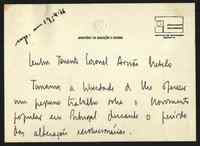 MINISTÉRIO DA EDUCAÇÃO E CULTURA
Senhor Tenente Coronel Arnão Metelo
Tomamos a liberdade de lhe oferecer
um pequeno trabalho sobre o movimento
popular em Portugal durante o período
das alterações revolucionárias.